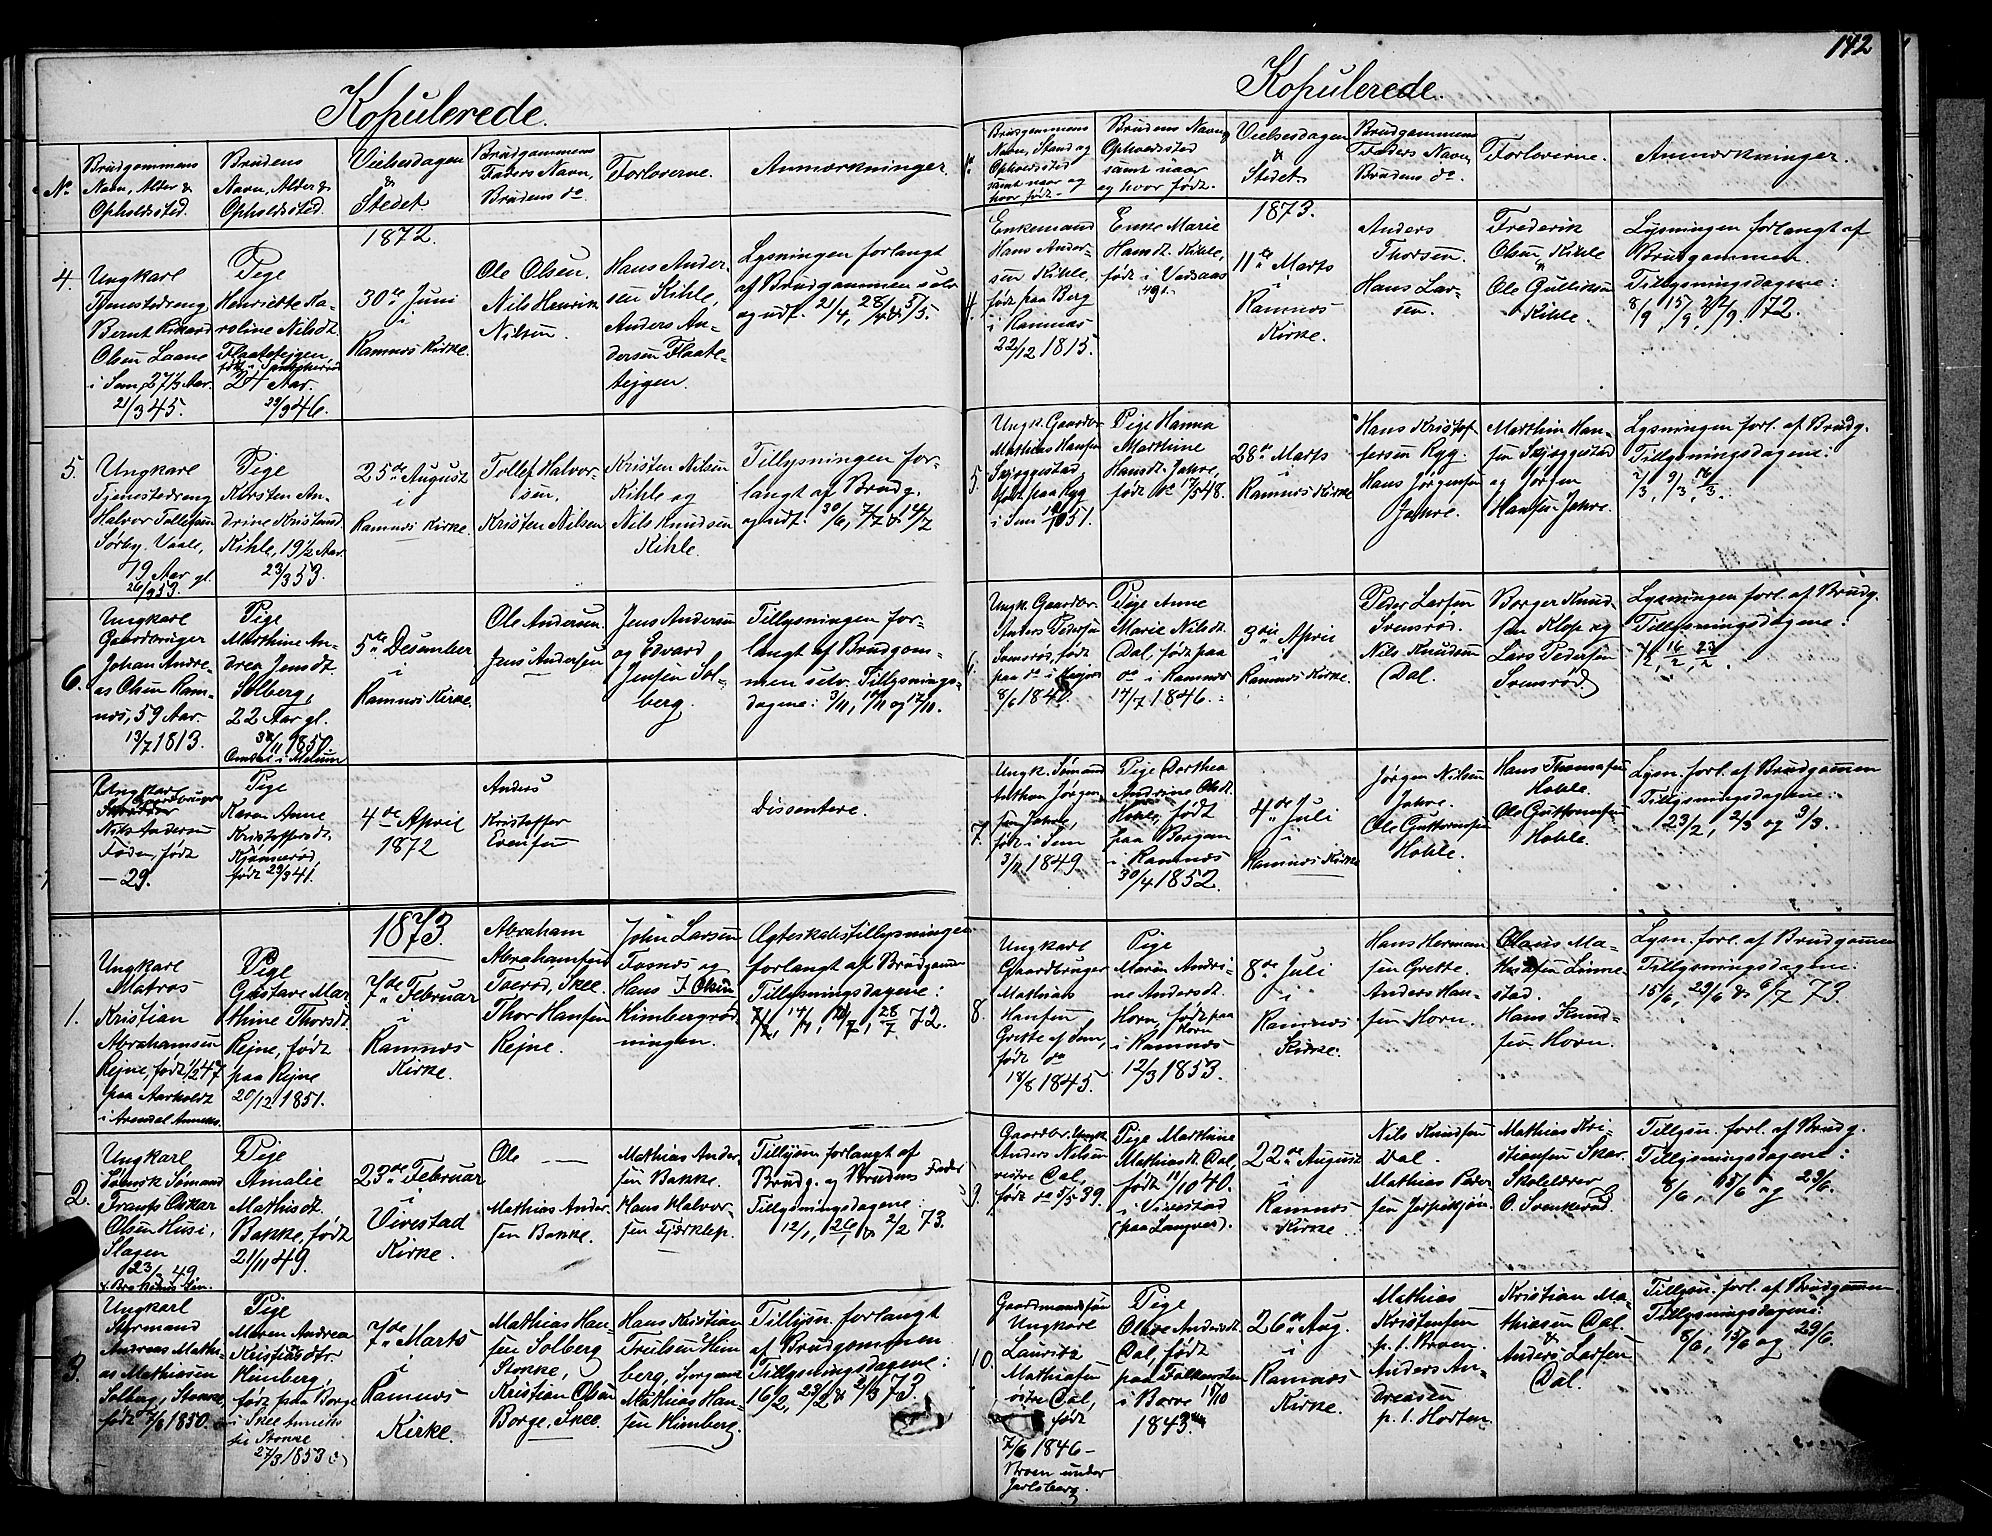 142
Kopulerede.
No
Brudgommens
Navn, Alter &
Opholdssted.
Brudens
Navn, Alder &
Opholdssted.
Vielsesdagen
&
Stedet.
Brudgommens
Faders Navn,
Brudens do
Forloverne.
Anmærkninger.
1872.
4.
Ungkarl
Tjenestedreng
Bernt Rikard
Olsen Laane
i Sem, 27 1/3 Aar.
21/3 45.
Pige
Henriette Ka-
roline Nilsdt.
Flaatetejgen,
24 Aar.
29/9 46.
30te Juni
i
Ramnes Kirke.
Ole Olsen.
Nils Henrik
Nilsen.
Hans Ander-
sen Kihle,
Anders An-
dersen Flaate-
tejgen.
Lysningen forlangt
af Brudgommen selv
og udf. 21/4, 28/4 & 5/5.
5.
Ungkarl
Tjenestedreng
Halvor Tollefsen
Sørby, Vaale,
19 Aar gl.
26/9 53.
Pige
Kirsten An-
drine Kristensd.
Kihle, 19 1/2 Aar.
23/3 53.
25de August
i
Ramnes Kirke.
Tollef Halvor-
sen,
Kristen Nilsen
Kristen Nilsen
Kihle og
Nils Knudsen
Kihle.
Tillysningen for-
langt af Brudg.
og udf. 30/6, 7/7 & 14/7
6.
Ungkarl
Gaardbruger
Johan Andre-
as Olsen Ram-
nes, 59 Aar.
13/7 1813.
Pige
Marthine An-
drea Jensdt.
Solberg,
22 Aar gl.
30/11 1850.
5te Desember
i
Ramnes Kirke.
Ole Andersen.
Jens Andersen
Jens Andersen
og Edvard
Jensen Sol-
berg.
Tillysningen for-
langt af Brudgom-
men selv. Tillysnings-
dagene: 3/11, 10/11 og 17/11.
Ungkarl
Gaardbruger
Nils Andersen
Foden, født
— 29.
Pige
Karen Anne
Kristoffersdt.
født 29/3 41.
4de April
1872
Anders
Kristoffer
Evensen
Dissentere.
1873.
1.
Ungkarl
Matros
Kristian
Abrahamsen
Rejne, født 11/2 47
paa Aarholdt
i Arendal Anneks.
Pige
Gustave Mar-
thine Thorsdt.
Rejne, født
paa Rejne
20/12 1851.
7de Februar
i
Ramnes
Kirke.
Abraham
Abrahamsen
Toerød, Skee.
Thor Hansen
Rejne.
John Larsen
Tosnes og
Hans J. Olsen
Himbergrød-
ningen.
Ægteskabstillysningen
forlangt af Brudgommen
Tillysningsdagene:
7/7, 14/7, 21/7, 28/7 72.
2.
Ungkarl
Svensk Sømand
Frants Oskar
Olsen Husi,
Slagen
23/2 49
Pige
Amalie
Mathisdt.
Bakke, født
21/11 49.
23de Februar
i
Vivestad
Kirke.
Ole —
Mathias Ander-
sen Bakke.
Mathias Ander-
sen Bakke.
Hans Halvor-
sen Fjærklep.
Tillysn. forlangt af
Brudg. og Brudens Fader
Tillysningsdagene:
12/1, 26/1 & 2/2 73.
3.
Ungkarl
Styrmand
Andreas Mathi-
as Mathiasen
Solberg, Stokke,
født 7/6 1850.
Pige
Maren Andrea
Kristiansdtr.
Himberg,
født paa Borge
i Skee Anneks
til Stokke
27/3 1853
7de Marts
i
Ramnes
Kirke.
Mathias Han-
sen Solberg
Stokke,
Kristian Olsen
Borge, Skee.
Hans Kristian
Trulsen Him-
berg,
Mathias Han-
sen Himberg.
Tillysn. forlangt
af Brudgommen
Tillysningsdagene:
16/2, 23/2 & 2/3 73.
Kopulerede.
No
Brudgommens
Navn, Stand og
Opholdssted
samt naar og
hvor født.
Brudens Navn,
Opholdssted
samt naar
og hvor født.
Vielsesdagen
&
Stedet.
Brudgommens
Faders Navn,
Brudens do
Forloverne.
Anmærkninger.
1873.
4.
Enkemand
Hans Ander-
sen Kihle,
født paa Berg
i Ramnes
22/12 1815.
Enke Marie
Hansdt. Kihle,
født i Vadsaas
49 1.
11te Marts
i
Ramnes
Kirke.
Anders
Thorsen.
Hans Lar-
sen.
Frederik
Olsen Kihle
&
Ole Gulliksen
Kihle.
Lysningen forlangt af
Brudgommen.
Tillysningsdagene:
8/9, 15/9, 22/9. 72.
5.
Ungk. Gaardbr.
Mathias Hansen
Skjeggestad,
født paa Ryg
i Sem 19/10 51.
Pige Hanna
Marthine
Hansdt. Jahre,
født do 17/5 48.
28de Marts
i
Ramnes Kirke
Hans Kristof-
fersen Ryg.
Hans Jørgensen
Jahre.
Marthin Han-
sen Skjeggestad
og Jørgen
Hansen Jahre.
Lysningen forl. af Brudg.
Tillysningsdagene:
2/3, 9/3, 16/3.
6.
Ungk. Gaardbr.
Anders Pedersen
Svensrød, født
paa do i
8/6 1840.
Pige Anne
Marie Nilsdt.
Dal, født paa
do i Ramnes
14/7 1846.
3die April
i
Ramnes Kirke.
Peder Larsen
Svensrød.
Nils Knudsen
Dal.
Borger Knud-
sen Klop og
Lars Pedersen
Svensrød.
Lysningen forl. af Brudg.
Tillysningsdagene:
9/2, 16/2, 23/2.
7.
Ungk. Sømand
Anthon Jørgen-
sen Jahre,
født i Sem
3/11 1849
Pige Dorthea
Andrine Olsdt.
Hohle, født
paa Borgen
i Ramnes
30/4 1852.
4de Juli
i
Ramnes Kirke
Jørgen Nilsen
Jahre.
Ole Guttormsen
Hohle.
Hans Thomasen
Hohle.
Ole Guttormsen
Hohle.
Lysn. forl. af Brudgommen
Tillysningsdagene:
23/2, 2/3 og 9/3.
8.
Ungkarl
Gaardbruger
Mathias
Hansen
Grette af Sem,
født do
18/8 1845.
Pige
Maren Andri-
ne Andersdt.
Horn, født paa
Horn
i Ramnes
12/3 1853.
8de Juli
i
Ramnes
Kirke.
Hans Herman-
sen Grette.
Anders Han-
sen Horn.
Olaus Ma-
thisen Linne-
stad.
Hans Knud-
sen Horn.
Lysn. forl. af Brudgommen
Tillysningsdagene:
15/6, 29/6 & 6/7 73.
9.
Gaardbr. Ungk.
Anders Nilsen
vestre Dal,
født do 5/5 39.
Pige Marthine
Mathiasdt. Dal,
født 11/10 40.
i Vivestad
(paa Langves).
22de August
i
Ramnes
Kirke.
Nils Knudsen
Dal.
Mathias Peder-
sen Jerpekjøn.
Mathias Kri-
stiansen Skar.
Skolelærer
O. Svenkerud.
Tillysn. forl. af Brudg.
Tillysningsdagene:
8/6, 15/6 og 29/6.
10.
Gaardmandssøn
Ungkarl
Lauritz
Mathiasen
østre Dal,
født
7/6 1846 —
Broen under
Jarlsberg.
Pige
Olave Andersdt.
Dal, født
paa Falkensten
i Borre 15/10
1843.
26de Aug.
i
Ramnes
Kirke.
Mathias
Kristensen
p. t. Broen.
Anders An-
dreasen
p. t. Horten.
Kristian Ma-
thiasen Dal.
&
Anders Larsen
Dal.
Tillysn. forl. af Brudgommen
Tillysningsdagene:
8/6, 15/6 og 29/6.